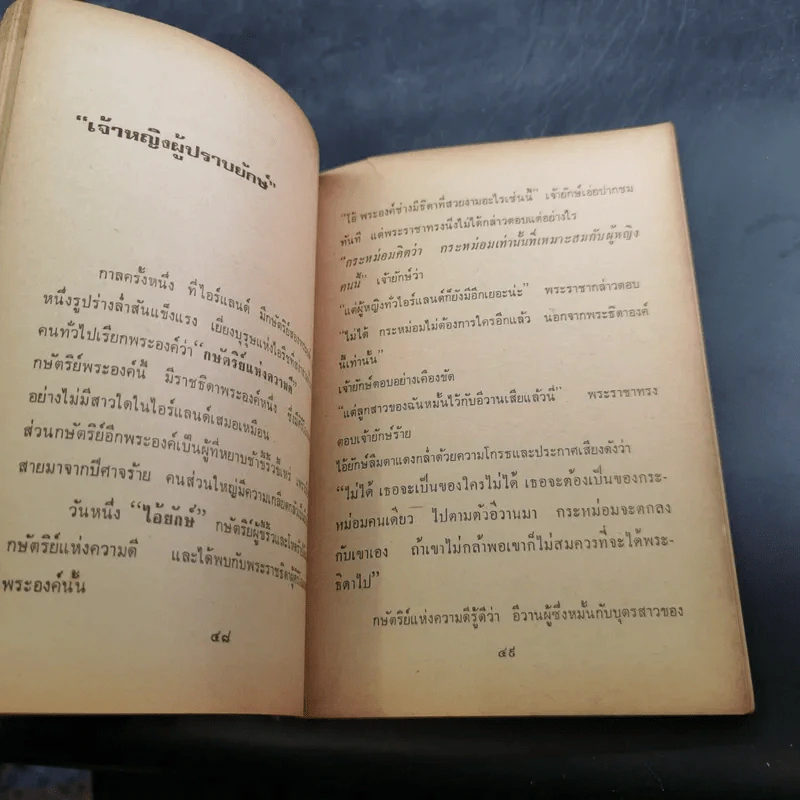 “เจ้าหญิงผู้ปราบยักษ์”
กาลครั้งหนึ่ง ที่ไอร์แลนด์ มีกษัตริย์
หนึ่งรูปร่างล่ำสันแข็งแรง เยี่ยงบุรุษแห่ง
คนทั่วไปเรียกพระองค์ว่า “กษัตริย์แห่งความดี”
กษัตริย์พระองค์นี้ มีราชธิดาพระองค์หนึ่ง
อย่างไม่มีสาวใดในไอร์แลนด์เสมอเหมือน
ส่วนกษัตริย์อีกพระองค์เป็นผู้ที่หยาบช้า
สายมาจากปีศาจร้าย คนส่วนใหญ่มีความเกลียด
วันหนึ่ง “ไอ้ยักษ์” กษัตริย์ผู้ชั่วร้าย
กษัตริย์แห่งความดี และได้พบกับพระราชธิดา
พระองค์นั้น
๔๘
“โอ้ พระองค์ช่างมีธิดาที่สวยงามอะไรเช่นนี้” เจ้ายักษ์เอ่ยปากชม
ทันที แต่พระราชาทรงนิ่งไม่ได้กล่าวตอบแต่อย่างไร
“กระหม่อมคิดว่า กระหม่อมเท่านั้นที่เหมาะสมกับผู้หญิง
คนนี้” เจ้ายักษ์ว่า
“แต่ผู้หญิงทั่วไอร์แลนด์ก็ยังมีอีกเยอะน่ะ” พระราชากล่าวตอบ
“ไม่ได้ กระหม่อมไม่ต้องการใครอีกแล้ว นอกจากพระธิดาองค์
นี้เท่านั้น”
เจ้ายักษ์ตอบอย่างเคืองขัด
“แต่ลูกสาวของฉันหมั้นไว้กับอีวานเสียแล้วนี่” พระราชาทรง
ตอบเจ้ายักษ์ร้าย
ไอ้ยักษ์ลืมตาแดงกล่ำด้วยความโกรธและประกาศเสียงดังว่า
“ไม่ได้ เธอจะเป็นของใครไม่ได้ เธอจะต้องเป็นของกระ-
หม่อมคนเดียว ไปตามตัวอีวานมา กระหม่อมจะตกลง
กับเขาเอง ถ้าเขาไม่กล้าพอเขาก็ไม่สมควรที่จะได้พระ-
ธิดาไป”
กษัตริย์แห่งความดีรู้ดีว่า อีวานผู้ซึ่งหมั้นกับบุตรสาวของ
๔๙